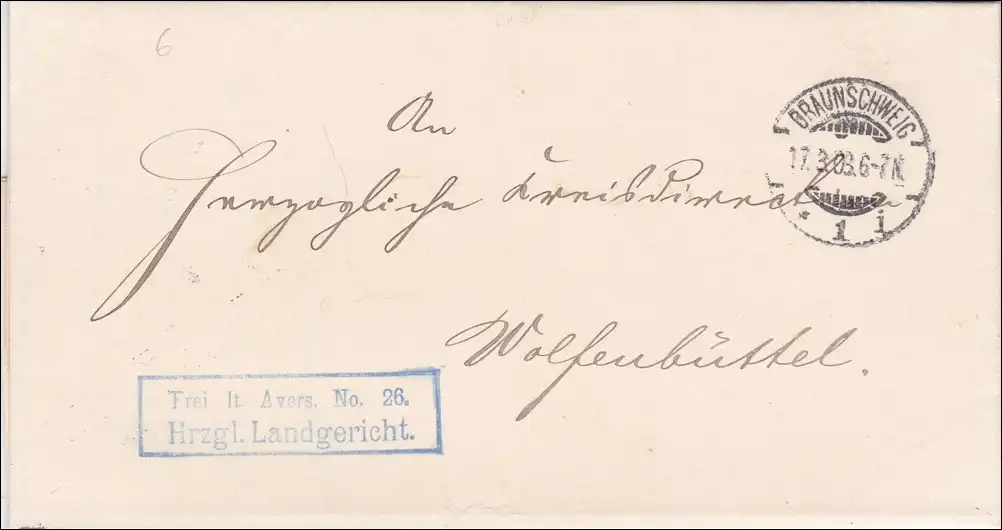 6
An
BRAUNSCHWEIG
17.3.03.6-7N.
* 1 i
Herzogliche Kreisdirection
Wolfenbüttel.
Frei lt. Avers. No. 26.
Hrzgl. Landgericht.